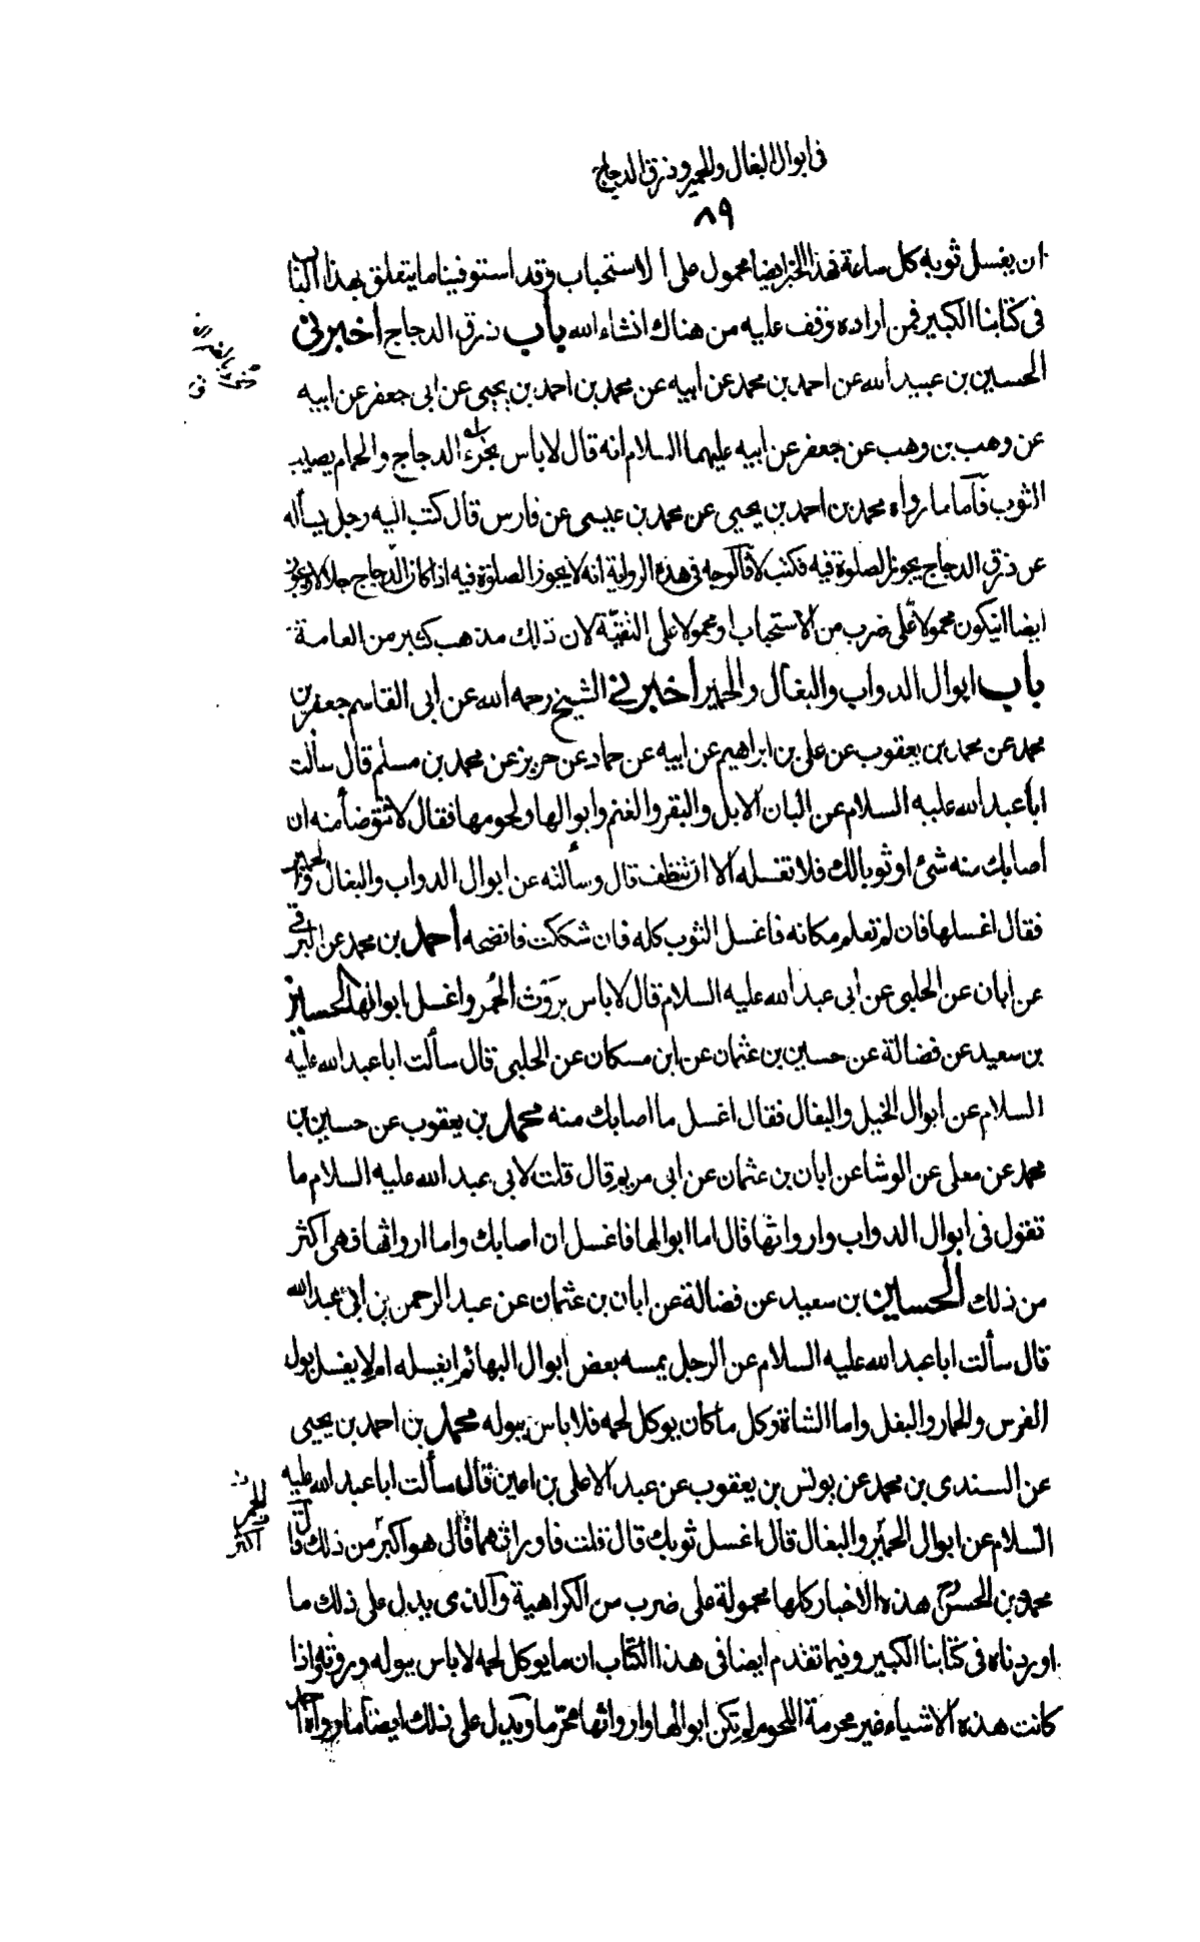 فى ابوال البغال والحمير وذرق الدجاج
٨٩
ان يغسل ثوبه كل ساعة فهذا الخبر ايضا محمول على الاستحباب وقد استوفينا ما يتعلق بهذا الباب
فى كتابنا الكبير فمن اراده وقف عليه من هناك انشاء الله باب ذرق الدجاج اخبرنى
الحسين بن عبيد الله عن احمد بن محمد عن ابيه عن محمد بن احمد بن يحيى عن ابى جعفر عن ابيه
عن وهب بن وهب عن جعفر عن ابيه عليهما السلام انه قال لا باس بخرء الدجاج والحمام يصيب
الثوب فاما ما رواه محمد بن احمد بن يحيى عن محمد بن عيسى عن فارس قال كتب اليه رجل يسأله
عن ذرق الدجاج يجوز الصلوة فيه فكتب لا فالوجه فى هذه الرواية انه لا يجوز الصلوة فيه اذا كان الدجاج جلالا ويجوز
ايضا ان يكون محمولا على ضرب من الاستحباب او محمولا على التقية لان ذلك مذهب كثير من العامة
باب ابوال الدواب والبغال والحمير اخبرنى الشيخ رحمه الله عن ابى القاسم جعفر بن
محمد عن محمد بن يعقوب عن على بن ابراهيم عن ابيه عن حماد عن حريز عن محمد بن مسلم قال سألت
ابا عبد الله عليه السلام عن البان الابل والبقر والغنم وابوالها ولحومها فقال لا تتوضأ منه ان
اصابك منه شئ او ثوبا لك فلا تغسله الا ان تتنظف قال وسألته عن ابوال الدواب والبغال والحمير
فقال اغسلها فان لم تعلم مكانه فاغسل الثوب كله فان شككت فانضحه احمد بن محمد عن البرقى
عن ابان عن الحلبى عن ابى عبد الله عليه السلام قال لا باس بروث الحمر واغسل ابوالها الحسين
بن سعيد عن فضالة عن حسين بن عثمان عن ابن مسكان عن الحلبى قال سألت ابا عبد الله عليه
السلام عن ابوال الخيل والبغال فقال اغسل ما اصابك منه محمد بن يعقوب عن حسين بن
محمد عن معلى عن الوشا عن ابان بن عثمان عن ابى مريم قال قلت لابى عبد الله عليه السلام ما
تقول فى ابوال الدواب واروائها قال اما ابوالها فاغسل ان اصابك واما ارواثها فهى اكثر
من ذلك الحسين بن سعيد عن فضالة عن ابان بن عثمان عن عبد الرحمن بن ابى عبد الله
قال سألت ابا عبد الله عليه السلام عن الرجل يمسه بعض ابوال البهائم ايغسله ام لا يغسل بول
الفرس والحمار والبغل واما الشاة وكل ما كان يوكل لحمه فلا باس ببوله محمد بن احمد بن يحيى
عن السندى بن محمد عن يونس بن يعقوب عن عبد الاعلى بن اعين قال سألت ابا عبد الله عليه
السلام عن ابوال الحمير والبغال قال اغسل ثوبك قال قلت فاوراثهما قال هو اكبر من ذلك قال
محمد بن الحسن هذه الاخبار كلها محمولة على ضرب من الكراهية والذى يدل على ذلك ما
اوردناه فى كتابنا الكبير وفيما تقدم ايضا فى هذا الكتاب ان ما يوكل لحمه لا باس ببوله وروثه واذا
كانت هذه الاشياء غير محرمة اللحوم لم تكن ابوالها وارواثها محرما ويدل على ذلك ايضا ما رواه احمد
للحمر
اكثر